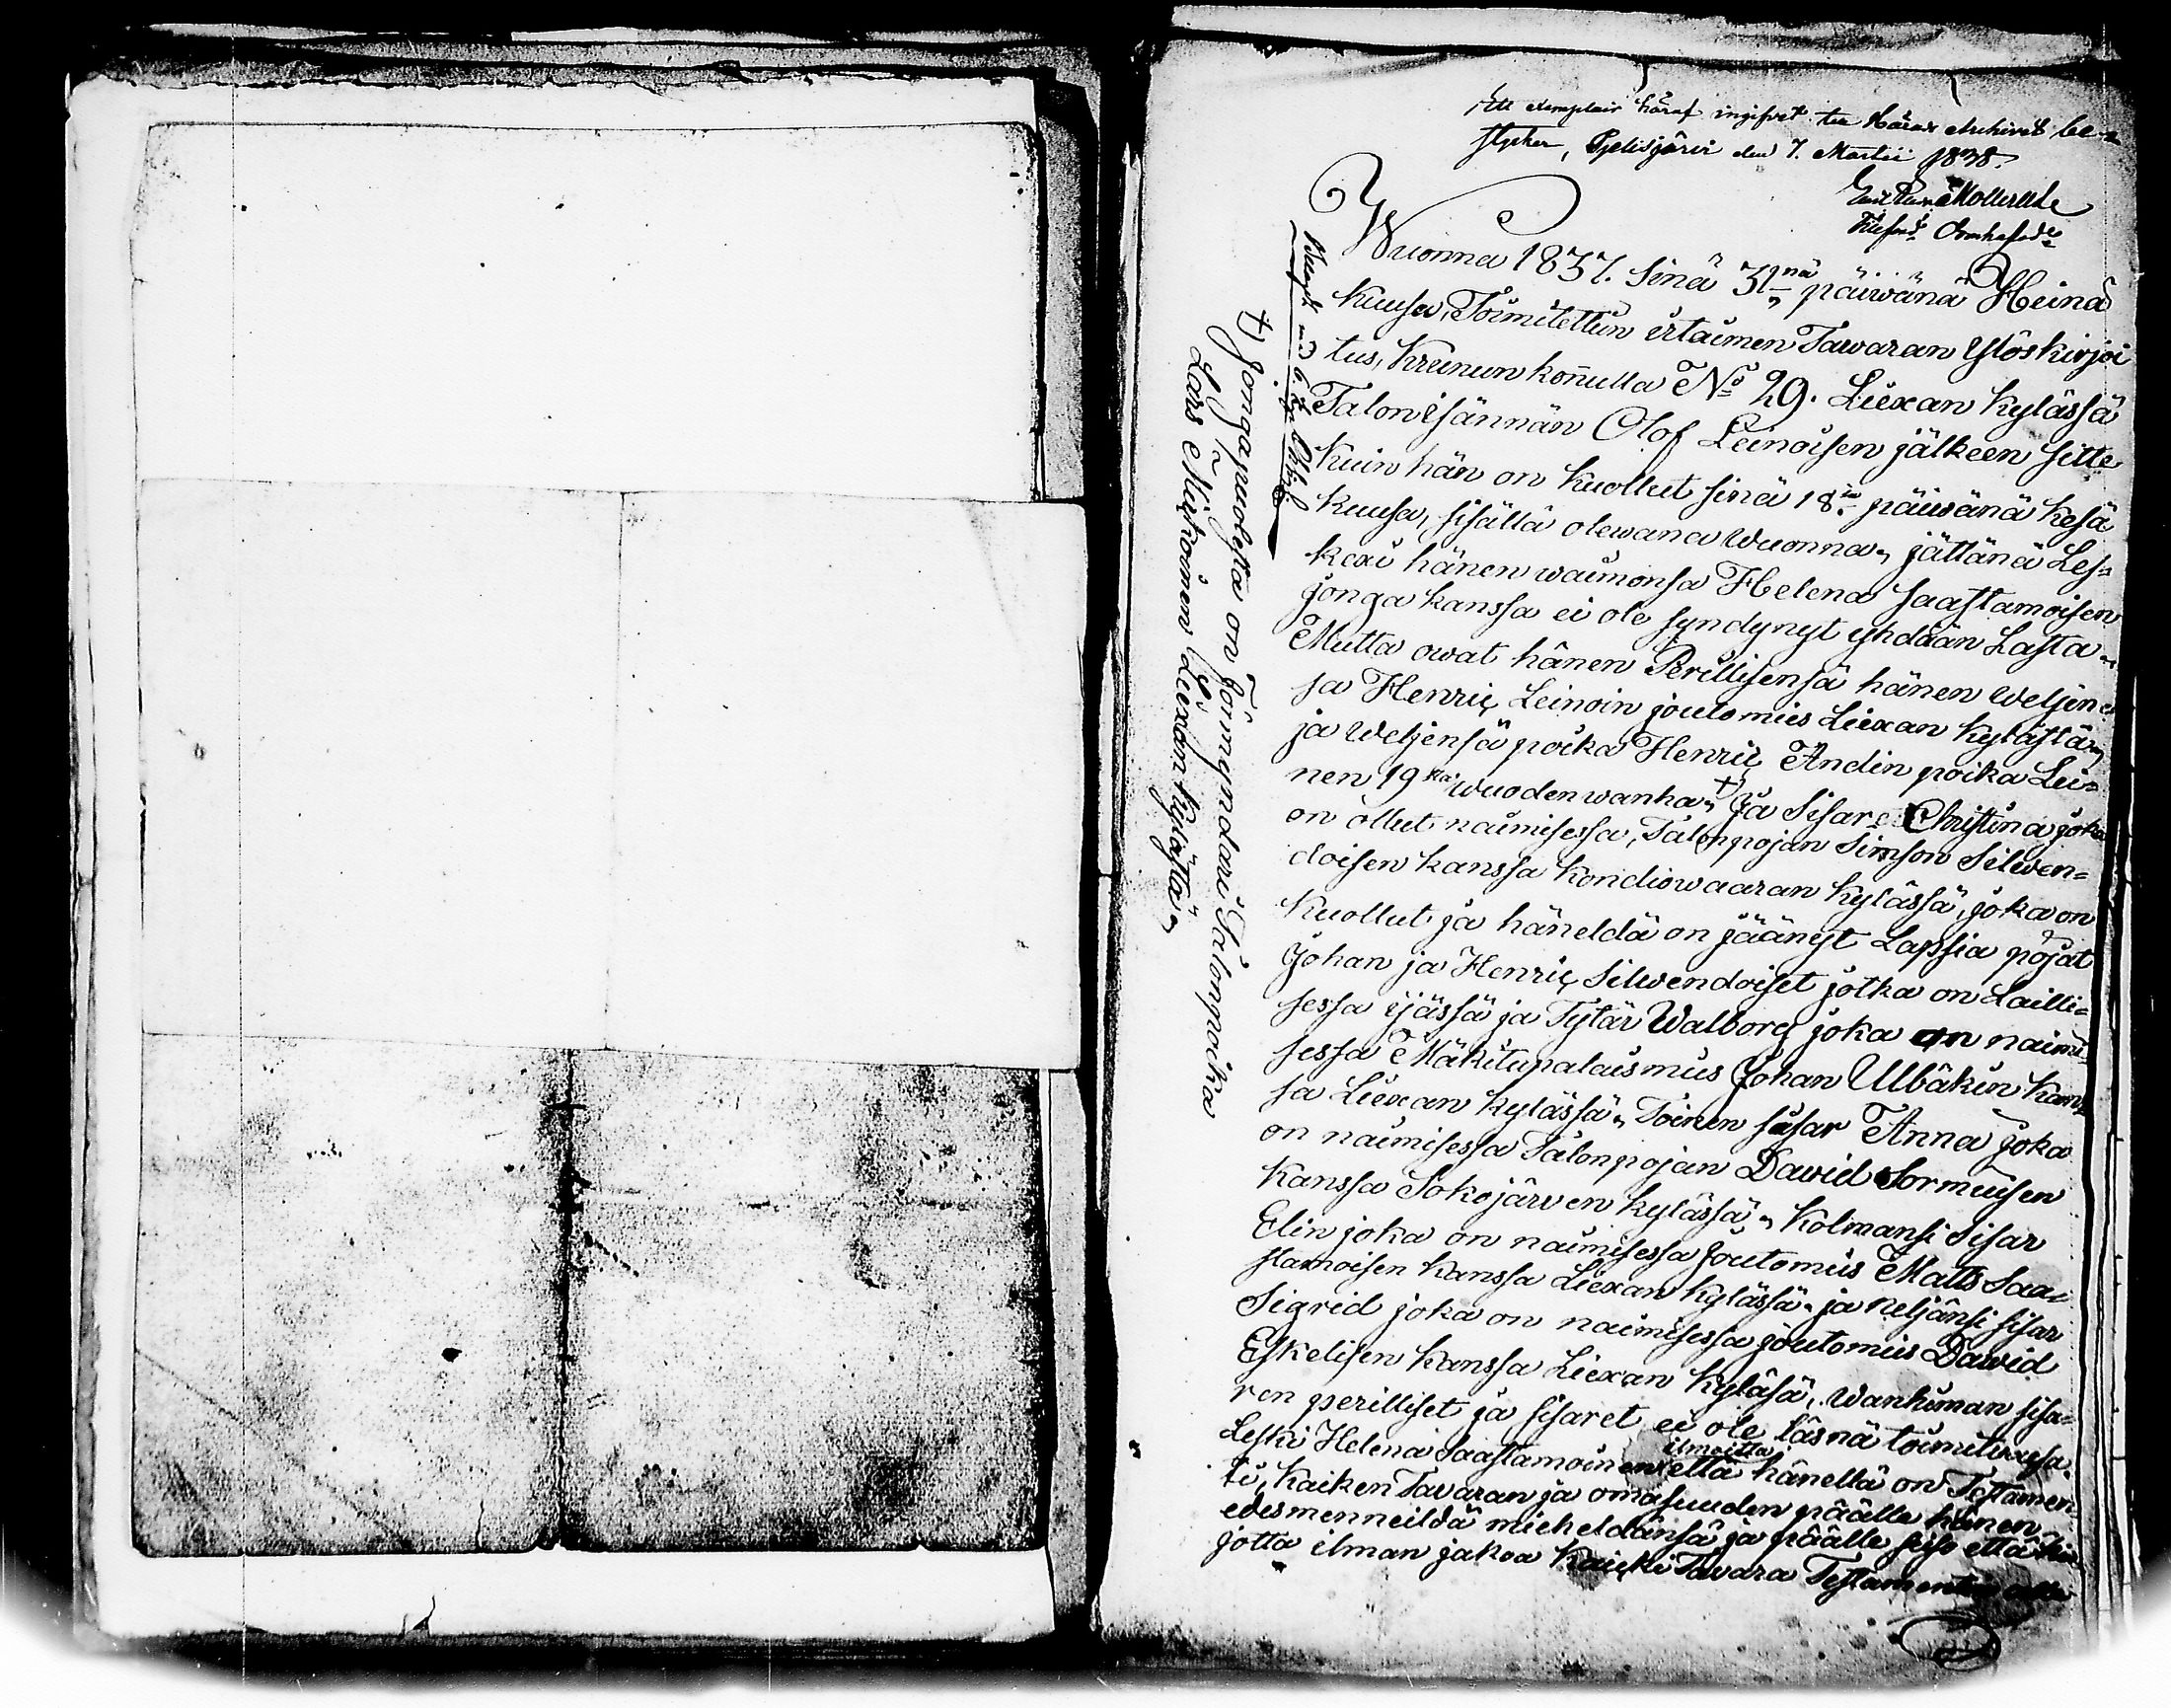 Ett exemplair häraf ingifvet til Härads Archivet be-
styrker, Pielisjärvi den 7. Martii 1838.
Wuonna 1837. Sinä 31nä päiwänä Heinä
kuusa, Toimitettin irtaimen Tawaran Ylöskirjoi
tus, Kruunun koñulla No 29. Liexan kylässä
Talon isännän Olof Leinoisen jälkeen sitte
kuin hän on kuollut sinä 18ta päiwänä kesä
kuusa, sisällä olewana wuonna, jättänä Les=
kexi hänen waimonsa Helena Saastamoisen
jonga kanssa ei ole syndynyt yhdään Lasta,
Mutta owat hänen Perillisensä hänen weljen=
sa Henric Leinoin joutomies Liexan kylästä,
ja weljensä poika Henric Andin poika Lei=
nen 19sta wuoden wanha, †) Ja Sisar Christina joka
on ollut naimisessa, Talonpojan Simson Silwen=
doisen kanssa Kondiowaaran kylässä, joka on
kuollut ja häneldä on jäänyt Lapsia pojat
Johan ja Henric Silwendoiset jotka on Lailli=
sessa ijässä ja Tytär Walborg joka on naimi
sessa Mäkitupalaismies Johan Ulbäkin kans
sa Liexan kylässä, Toinen sisar Anna joka
on naimisessa Talonpojan David Sormuisen
kanssa Sokojärwen kylässä, Kolmansi Sisar
Elin joka on naimisessa Joutomies Matts Saa=
stamoisen kanssa Liexan kylässä, ja neljänsi sisar
Sigrid joka on naimisessa joutomies David
Eskelisen kanssa Liexan kyläsä, wanhiman sisa=
ren perilliset ja sisaret ei ole läsnä toimituxesa.
Leski Helena Saastamoinen ilmoitta että hänellä on Testamen
ti, kaiken Tavaran ja omasuuden päälle hänen
edesmenneildä mieheldänsä ja päälle seiso että
jotta ilman jakoa kaicki Tavara
†) Jongapuolesta on Förmyndari Talonpoika
Lars Miikoinen Liexan kylästä,